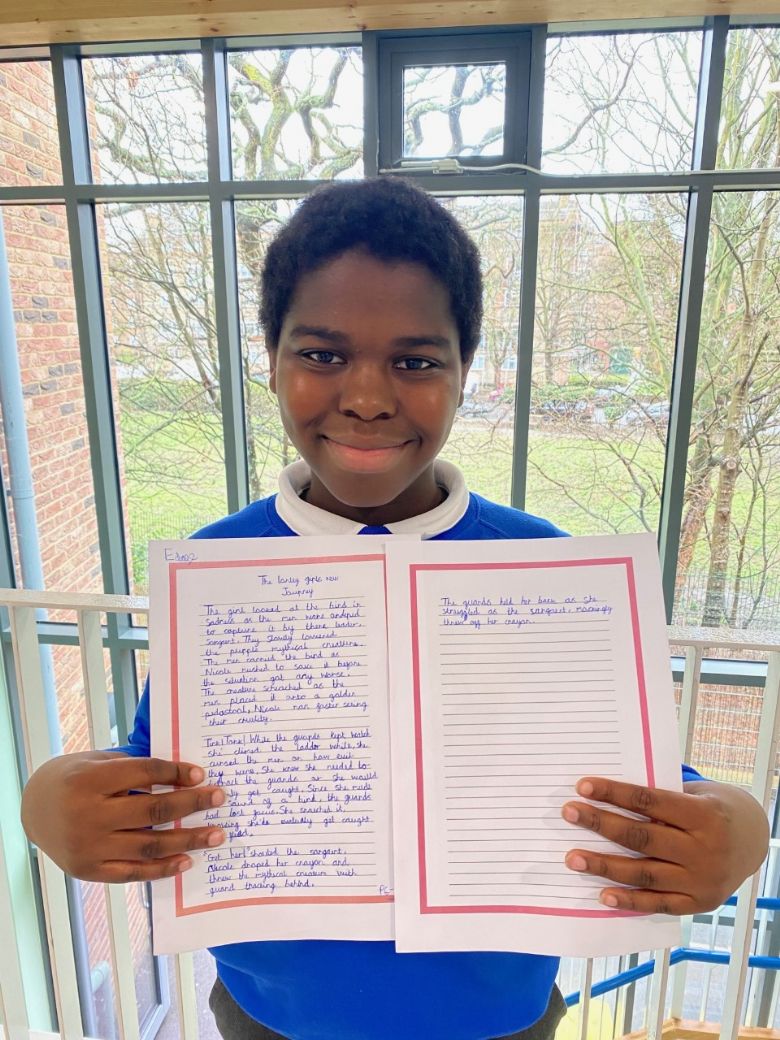 The lonley girls new
Journey
The girl looked at the bird in
sadness as the men were
to capture it by there leader,
Sargent. They slowly lowered
the purple mythical creature.
The men carried the bird as
Nicole rushed to save it before
the situation got any worse.
The creature screached as the
men placed it onto a golden
Nicole ran faster seeing
their cruelity.
Tink! Tank! While the guards kept watch
she climed the ladder while, she
cursed the men on how evil
they were. She knew she needed to
the guards or she would
get caught. Since she made
sound of a bird, the guards
had lost focus. She snatched it,
she'd get caught
"Get her!" shouted the sargant.
Nicole droped her crayon and
threw the mythical creature with
guard tracing behind.
The guards held her back as she
struggled as the sargeant, mockingly
threw off her crayon.